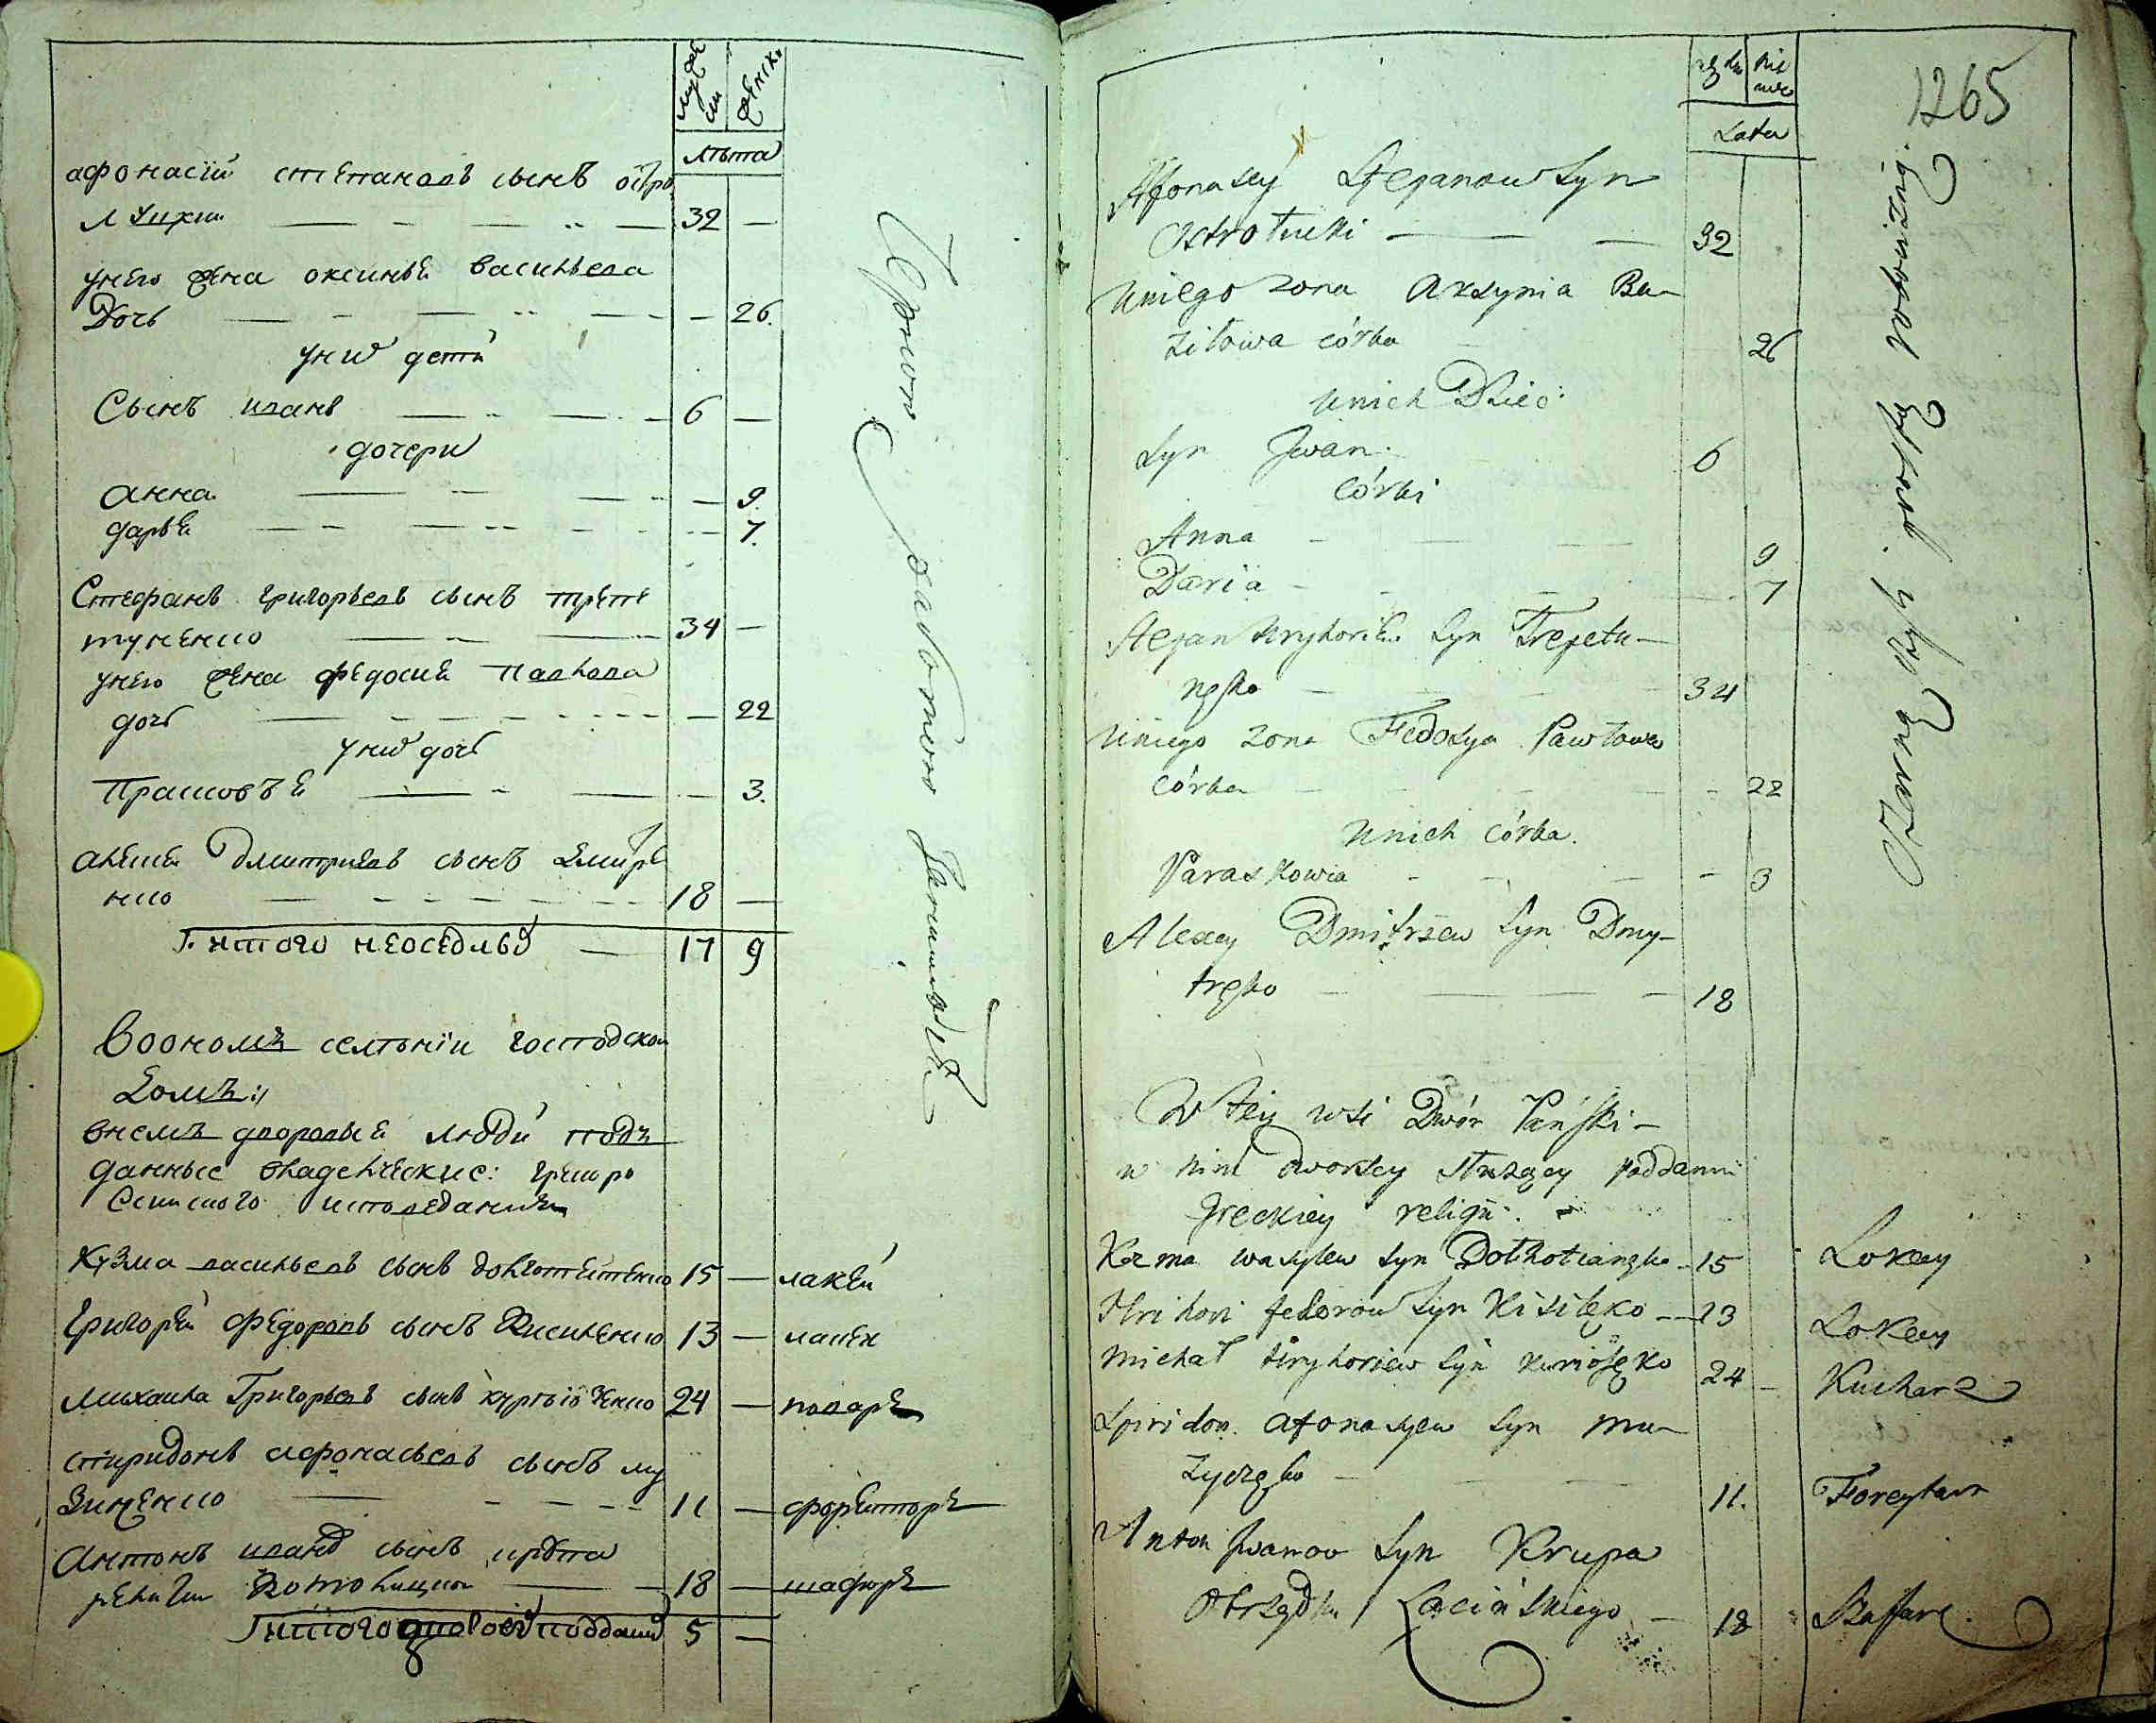 мужеск
женск
лѣта
афонасїй степановъ сынъ остро
луцки 32 —
унего жена оксинья васильева
дочь — 26.
у них дети
Сынъ иванъ 6 —
дочери
анна — 9.
дарья — 7.
Стефанъ григорьевъ сынъ трепе
туненко 34 —
унего жена федосия павлова
дочь — 22
у них дочь
Прасковья — 3.
алексей Дмитриевъ сынъ дмитре
нко 18 —
итого неоседлых 17 9
Черной работою занимаются
Воономъ селѣнїи господской
домъ:
внемъ дворовыя люди подъ
данные владелческие: греко ро
ссийского исповедания
Кузма васильевъ сынъ долготеленко 15 — лакей
Григорей федоровъ сынъ Кисиленко 13 — лакей
Михаила Григорьевъ сынъ курьїозенко 24 — поваръ
спиридонъ афонасьевъ сынъ му
зиченко 11 — форейторъ
Антонъ иванов сынъ крупа
религии католицкой 18 — шафаръ
итого дворовых подданых 5 —
1265
Lata
Afonasey Stepanow Syn
Ostrołucki 32
Uniego zona Aksynia Ba-
zilowa córka 26
Unich Dzieci
Syn Jwan 6
Córki
Anna 9
Daria 7
Stepan Hryhoriew Syn Trepetu-
nęko 34
Uniego zona Fedosya Pawłowa
córka 22
Unich córka.
Paraskowia 3
Alexey Dmitrzew Syn Dmy-
tręko 18
Czarną y prostą robocizną
W tey wsi Dwór Pański
w nim dworscy służący poddanni
Greckiey religii.
Kozma wasylew syn Dołhotianęko 15 Lokay
Hrihori fedorow Syn Kisilęko 13 Lokay
Michał Hryhoriew Syn Kuriozęko 24 Kucharz
Spiridon Afonasyew Syn Mu-
zyczęko 11. Foreytar
Anton Jwanow Syn Krupa
Obrządku Łacińskiego 18 Szaffarz